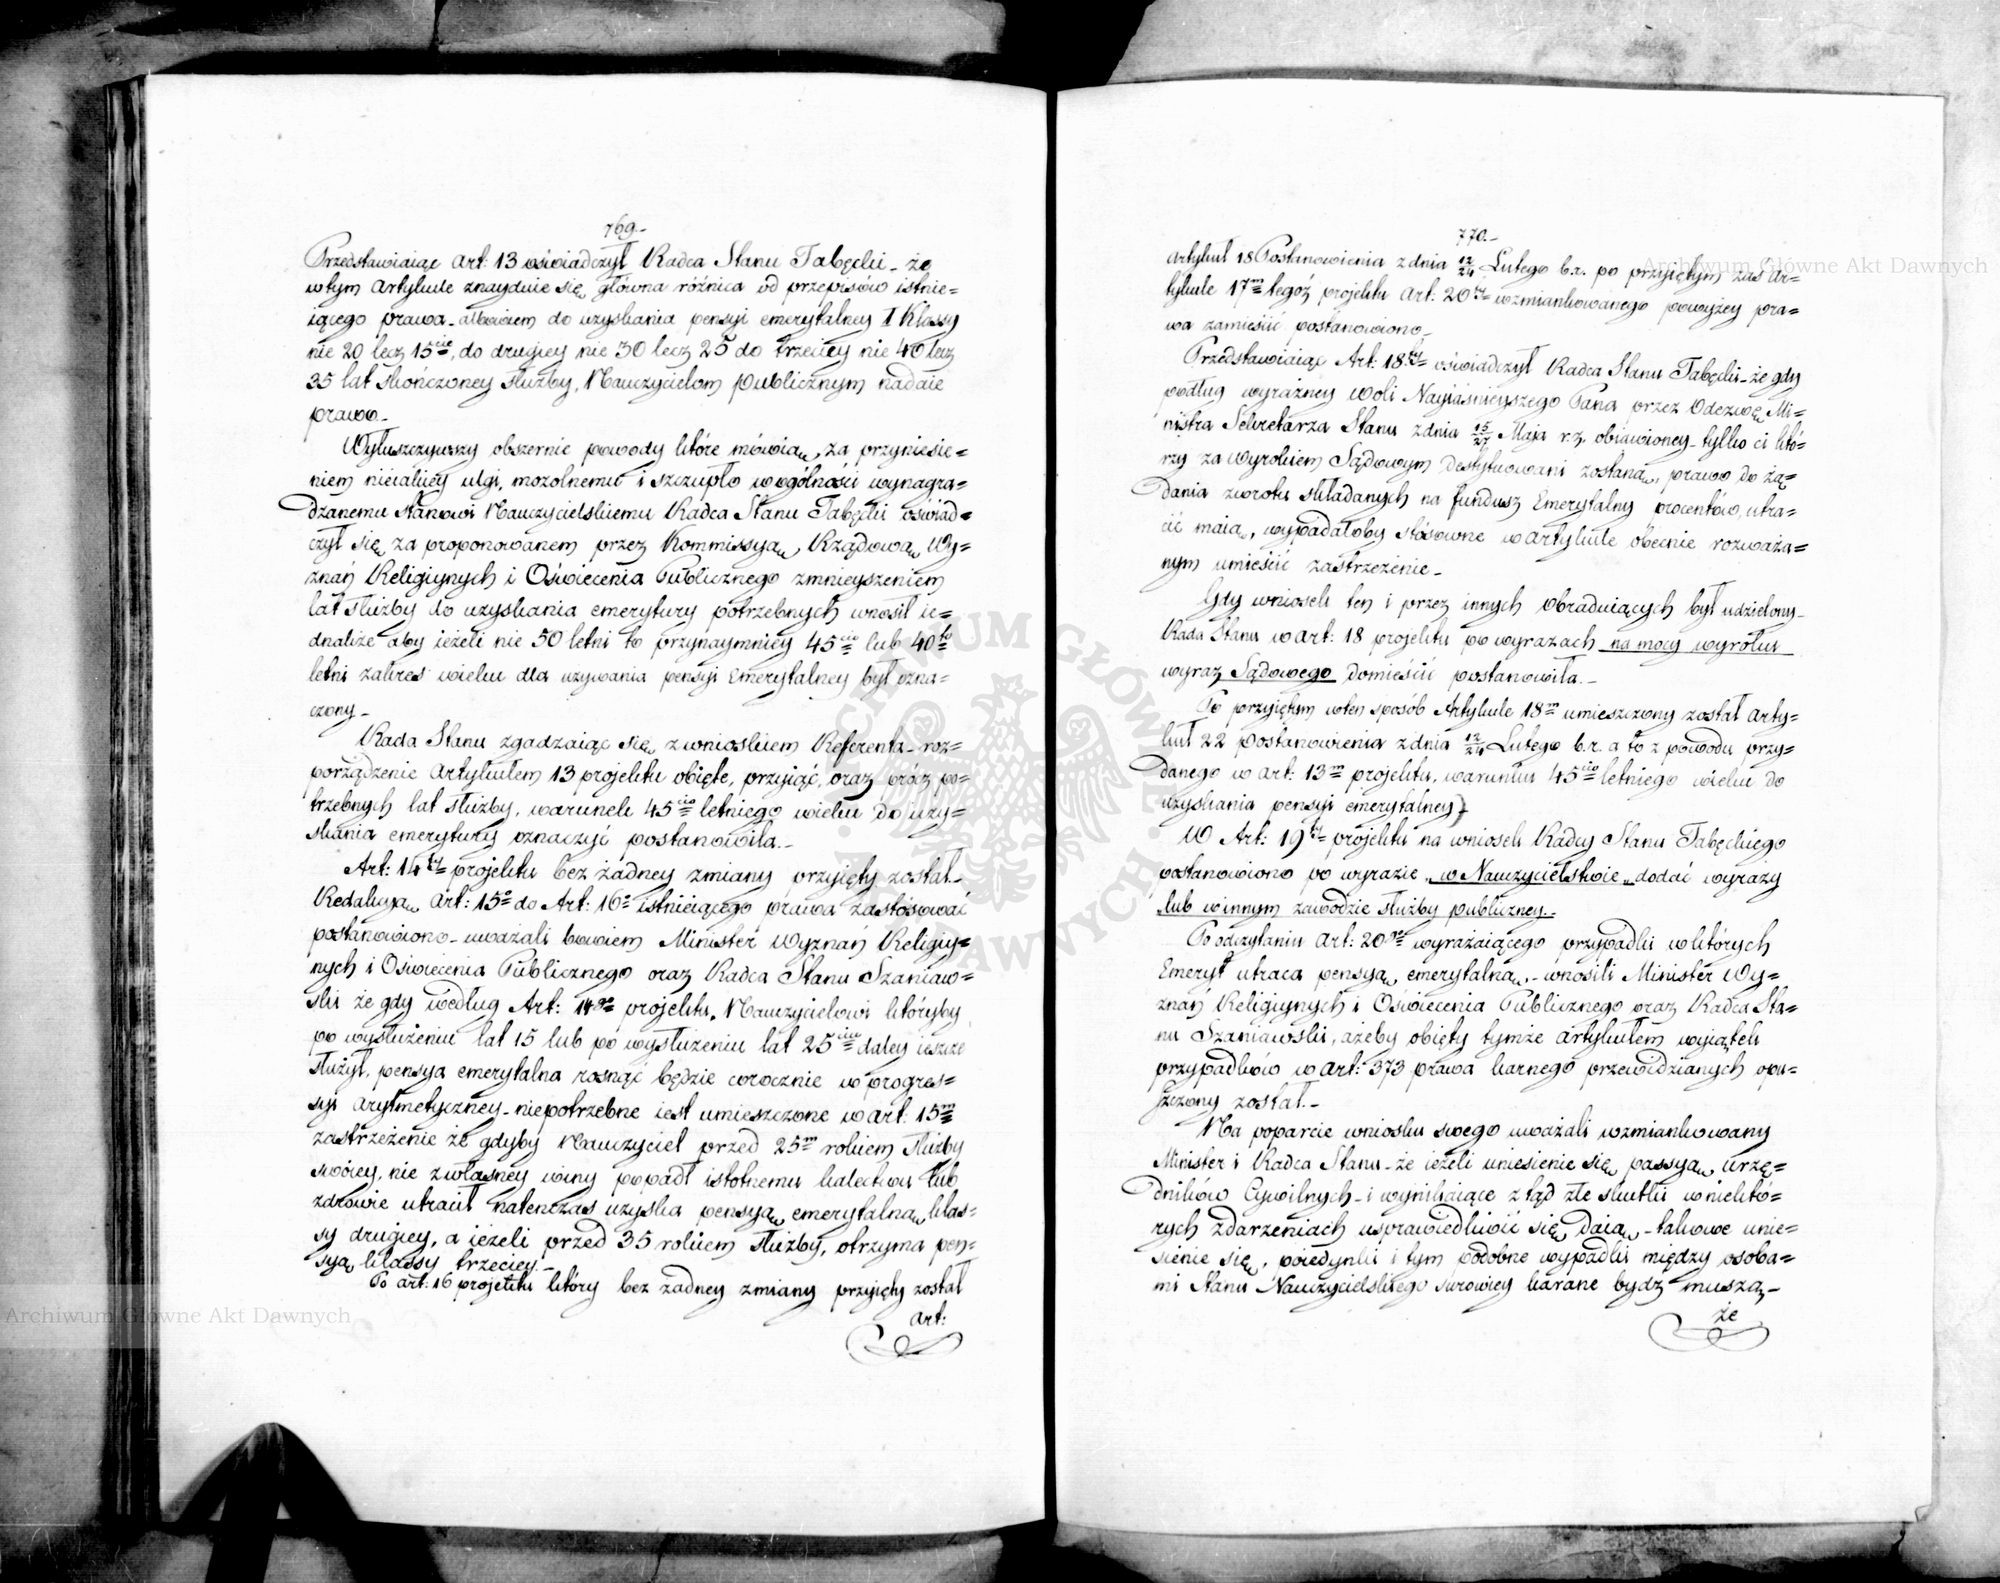 769.-
Przedstawiaiąc Art: 13 oświadczył Radca Stanu Tabęcki - że
w tym Artykule znayduie się główna różnica od przepisów istnie=
iącego prawa - albowiem do uzyskania pensyi emerytalney I Klassy
nie 20 lecz 15cie, do drugiey nie 30 lecz 25 do trzeciey nie 40 lecz
35 lat skończoney służby, Nauczycielom publicznym nadaie
prawo.-
Wyłuszczywszy obszernie powody które mówią, za przyniesie=
niem nieiakiey ulgi, mozolnemu i szczupło w ogólności wynagra=
dzanemu stanowi Nauczycielskiemu Radca Stanu Tabęcki oświad=
czył się za proponowanem przez Kommissyą, Rządową Wy=
znań Religiynych i Oświecenia Publicznego zmnieyszeniem
lat służby do uzyskania emerytury potrzebnych wnosił ie=
dnakże aby ieżeli nie 50 letni to przynaymniey 45cio lub 40to
letni zakres wieku dla używania pensyi Emerytalney był ozna=
czony.-
Rada Stanu zgadzaiąc się z wnioskiem Referenta - roz=
porządzenie Artykułem 13 projektu obięte, przyiąć, oraz prócz po=
trzebnych lat służby, warunek 45cio letniego wieku do uzy=
skania emerytury oznaczyć postanowiła.-
Art: 14ty projektu bez żadney zmiany przyięty został.-
Redakcyą Art: 15o do Art: 16o istnieiącego prawa zastósować
postanowiono - uważali bowiem Minister Wyznań Religiy=
nych i Oświecenia Publicznego oraz Radca Stanu Szaniaw=
ski że gdy według Art: 14go projektu, Nauczycielowi któryby
po wysłużeniu lat 15 lub po wysłużeniu lat 25ciu daley ieszcze
służył, pensya emerytalna rosnąć będzie corocznie w progres=
syi arytmetyczney - niepotrzebne iest umieszczone w Art: 15m
zastrzeżenie że gdyby Nauczyciel przed 25m rokiem służby
swoiey, nie z własney winy popadł istotnemu kalectwu lub
zdrowie utracił natenczas uzyska pensyą emerytalną klas=
sy drugiey, a ieżeli przed 35 rokiem służby, otrzyma pen=
syą klassy trzeciey.-
Po art: 16 projektu który bez żadney zmiany przyięty został
art:
770.-
Artykuł 18 Postanowienia z dnia 12/24 Lutego b.r. po przyiętym zaś Ar=
tykule 17m tegoż projektu Art: 20ty wzmiankowanego powyżey pra=
wa zamieścić postanowiono.-
Przedstawiaiąc Art: 18ty oświadczył Radca Stanu Tabęcki - że gdy
podług wyraźney woli Nayiaśnieyszego Pana przez Odezwę Mi=
nistra Sekretarza Stanu z dnia 15/27 Maja r.z. obiawioney - tylko ci któ=
rzy za wyrokiem Sądowym destytuowani zostaną, prawo do żą=
dania zwrotu składanych na fundusz Emerytalny procentów, utra=
cić maią, wypadałoby stósowne w artykule obecnie rozważa=
nym umieścić zastrzeżenie.-
Gdy wniosek ten i przez innych Obraduiących był udzielony -
Rada Stanu w Art: 18 projektu po wyrazach na mocy wyroku
wyraz Sądowego domieścić postanowiła.-
Po przyiętym w ten sposób Artykule 18m umieszczony został Arty=
kuł 22 Postanowienia z dnia 12/24 Lutego b.r. a to z powodu przy=
danego w Art: 13m projektu, warunku 45cio letniego wieku do
uzyskania pensyi emerytalney.
W Art: 19ty projektu na wniosek Radcy Stanu Tabęckiego
postanowiono po wyrazie „w Nauczycielstwie„ dodać wyrazy
„lub w innym zawodzie służby publiczney.-
Po odczytaniu Art: 20go wyrażaiącego przypadki w których
Emeryt utraca pensyą emerytalną, - wnosili Minister Wy=
znań Religiynych i Oświecenia Publicznego oraz Radca Sta=
nu Szaniawski, ażeby obięty tymże Artykułem wyiątek
przypadków w Art: 373 prawa karnego przewidzianych opu=
szczony został.-
Na poparcie wniosku swego uważali wzmiankowany
Minister i Radca Stanu - że ieżeli uniesienie się passyą urzę=
dników Cywilnych - i wynikaiące z tąd złe skutki w niektó=
rych zdarzeniach usprawiedliwić się daią - takowe unie=
sienie się, poiedynki i tym podobne wypadki między osoba=
mi Stanu Nauczycielskiego surowiey karane bydź muszą -
że
Archiwum Główne Akt Dawnych
Archiwum Główne Akt Dawnych
ARCHIWUM GŁÓWNE AKT DAWNYCH